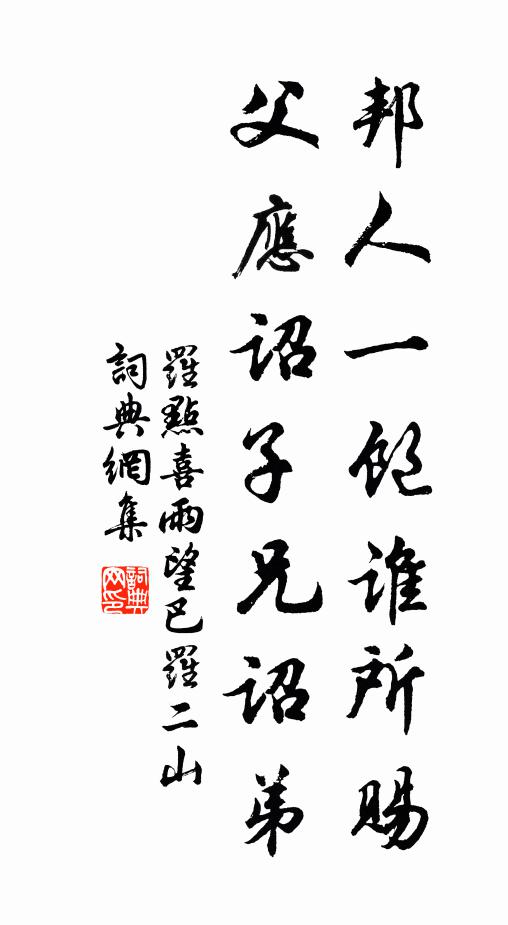 邦人一飽誰所賜
父應詔子兄詔弟
羅點喜雨望巴羅二山
詞典網集
詞典
网印